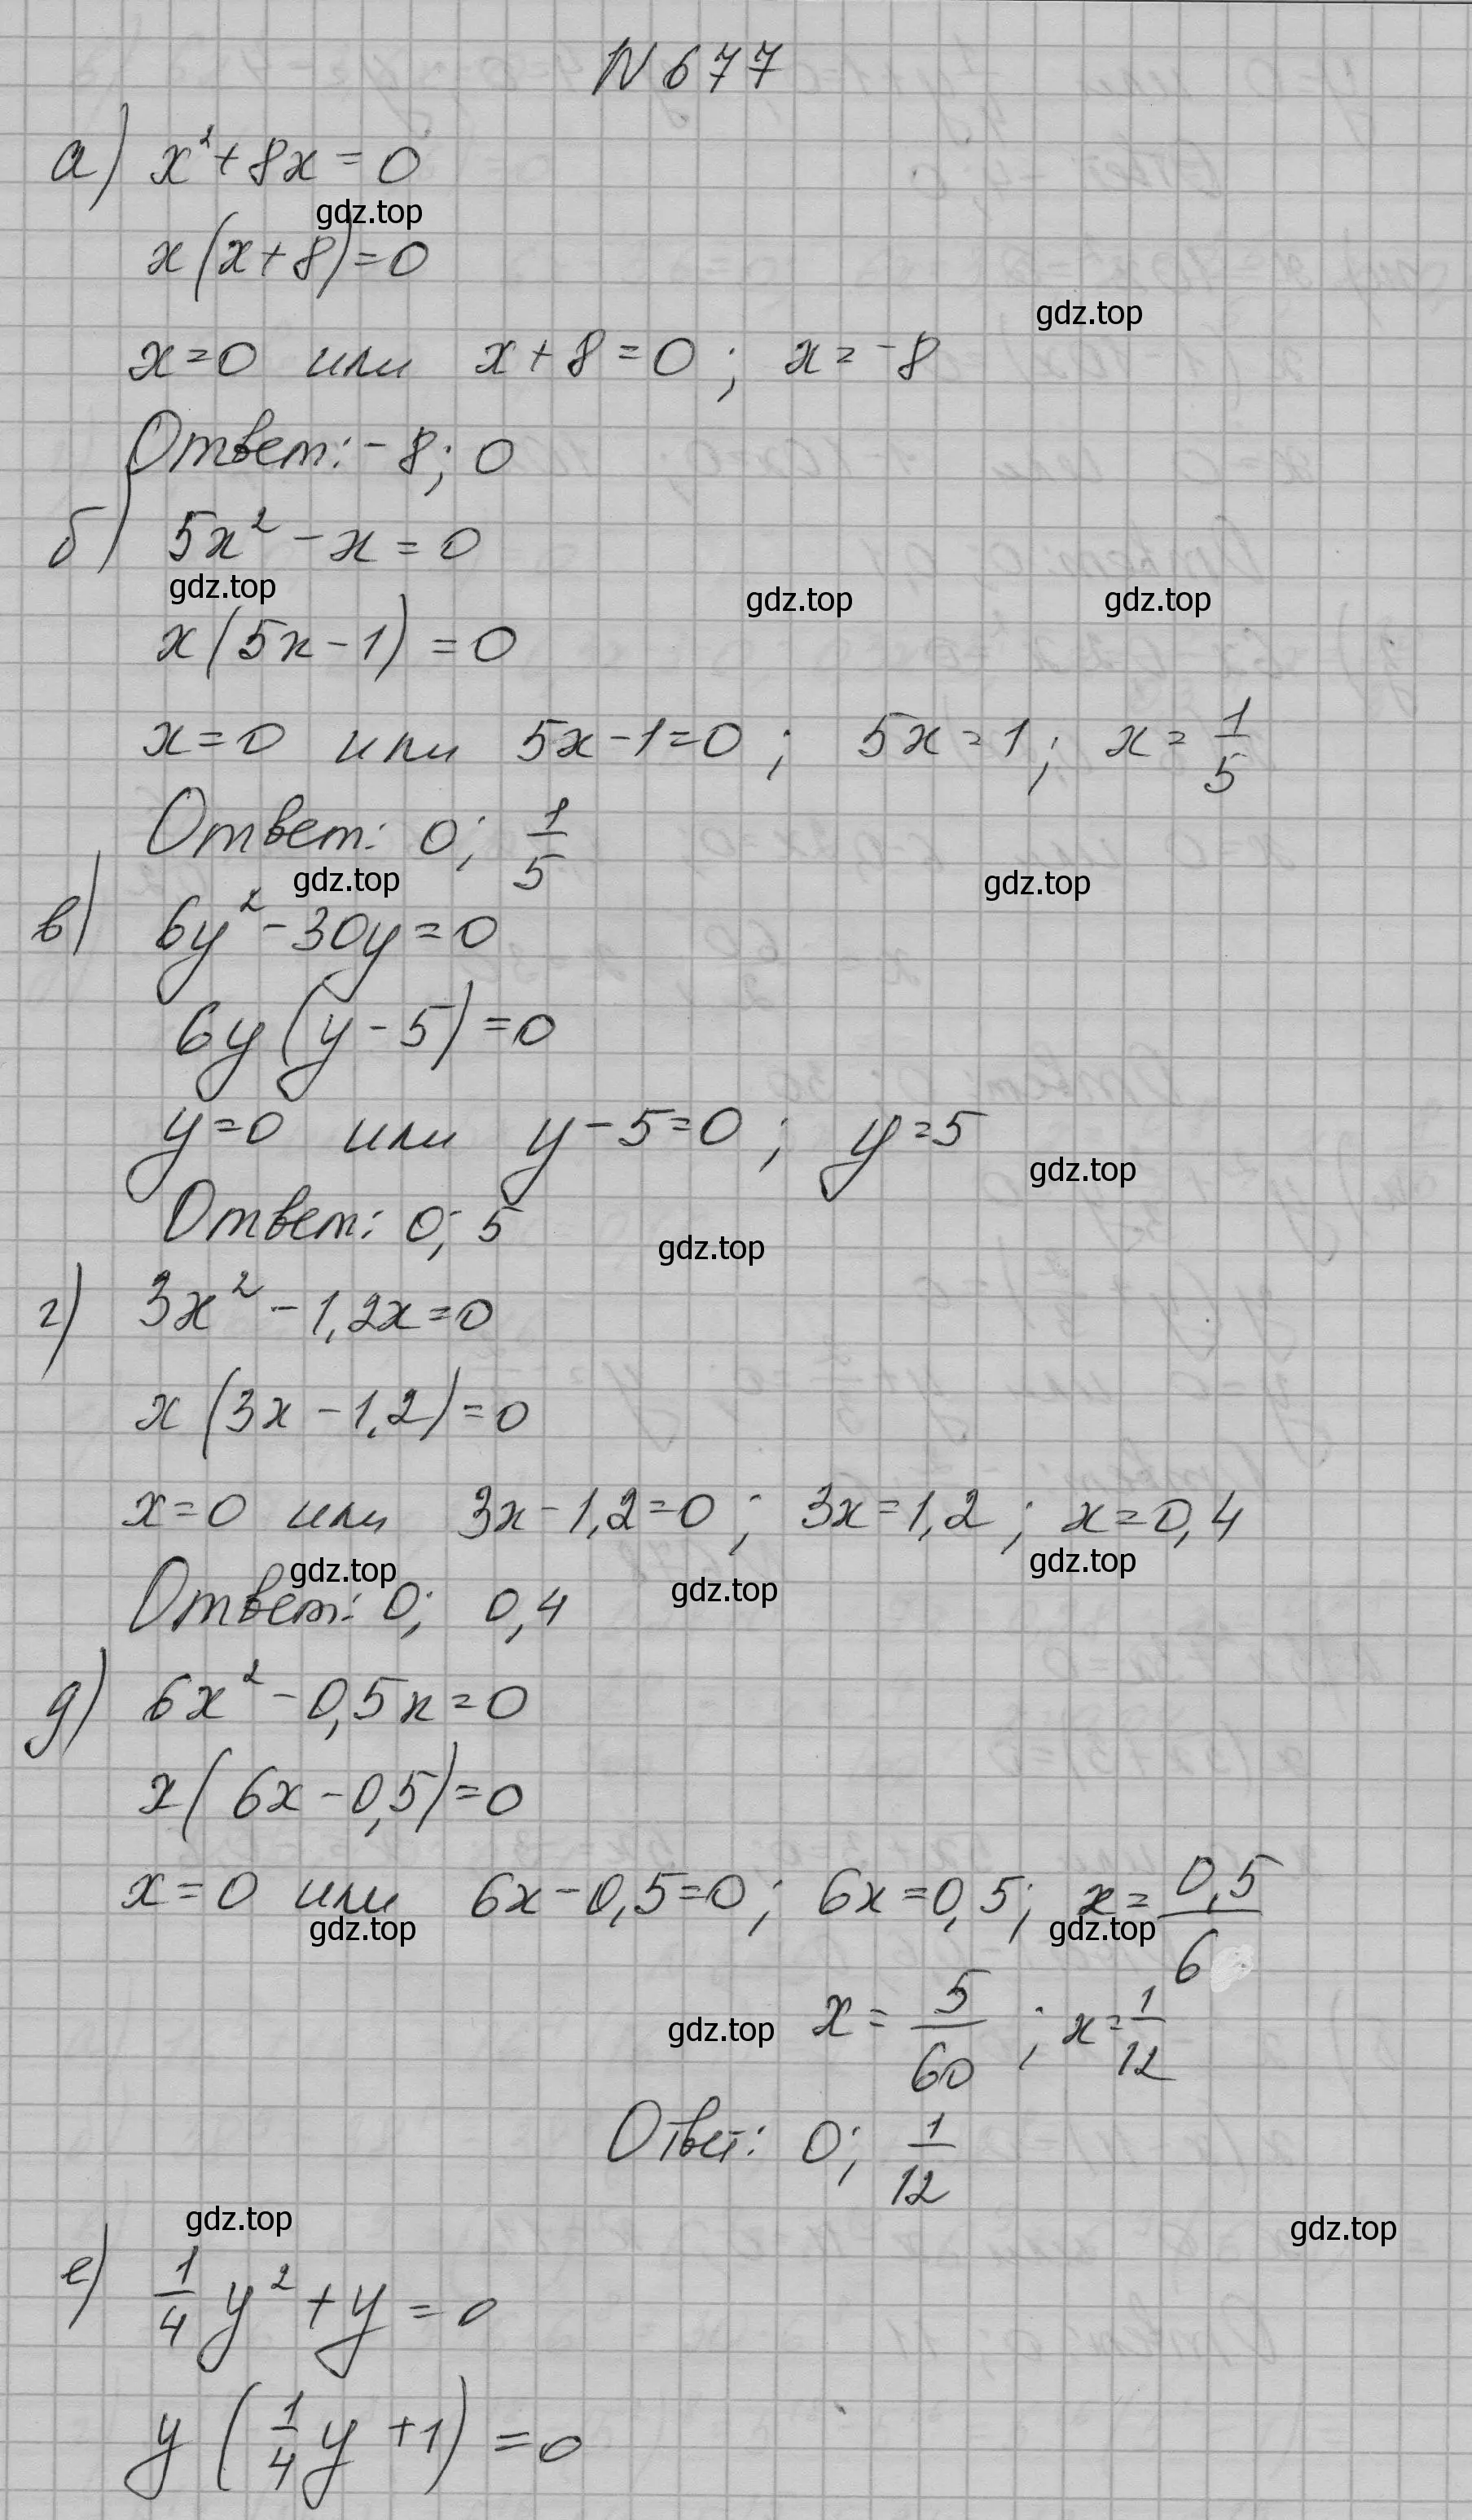 N 677
а) x²+8x=0
gdz.top
x(x+8)=0
gdz.top
x=0 или x+8=0; x=-8
Ответ: -8; 0
б) 5x²-x=0
gdz.top gdz.top gdz.top
x(5x-1)=0
x=0 или 5x-1=0; 5x=1; x=1/5
Ответ: 0; 1/5
gdz.top gdz.top
в) 6y²-30y=0
6y(y-5)=0
y=0 или y-5=0; y=5
gdz.top
Ответ: 0; 5
gdz.top
г) 3x²-1,2x=0
x(3x-1,2)=0
x=0 или 3x-1,2=0; 3x=1,2; x=0,4
gdz.top gdz.top gdz.top
Ответ: 0; 0,4
д) 6x²-0,5x=0
x(6x-0,5)=0
x=0 или 6x-0,5=0; 6x=0,5; x=0,5/6
gdz.top gdz.top
gdz.top x=5/60; x=1/12
Ответ: 0; 1/12
gdz.top gdz.top
е) 1/4 y²+y=0
y(1/4 y+1)=0